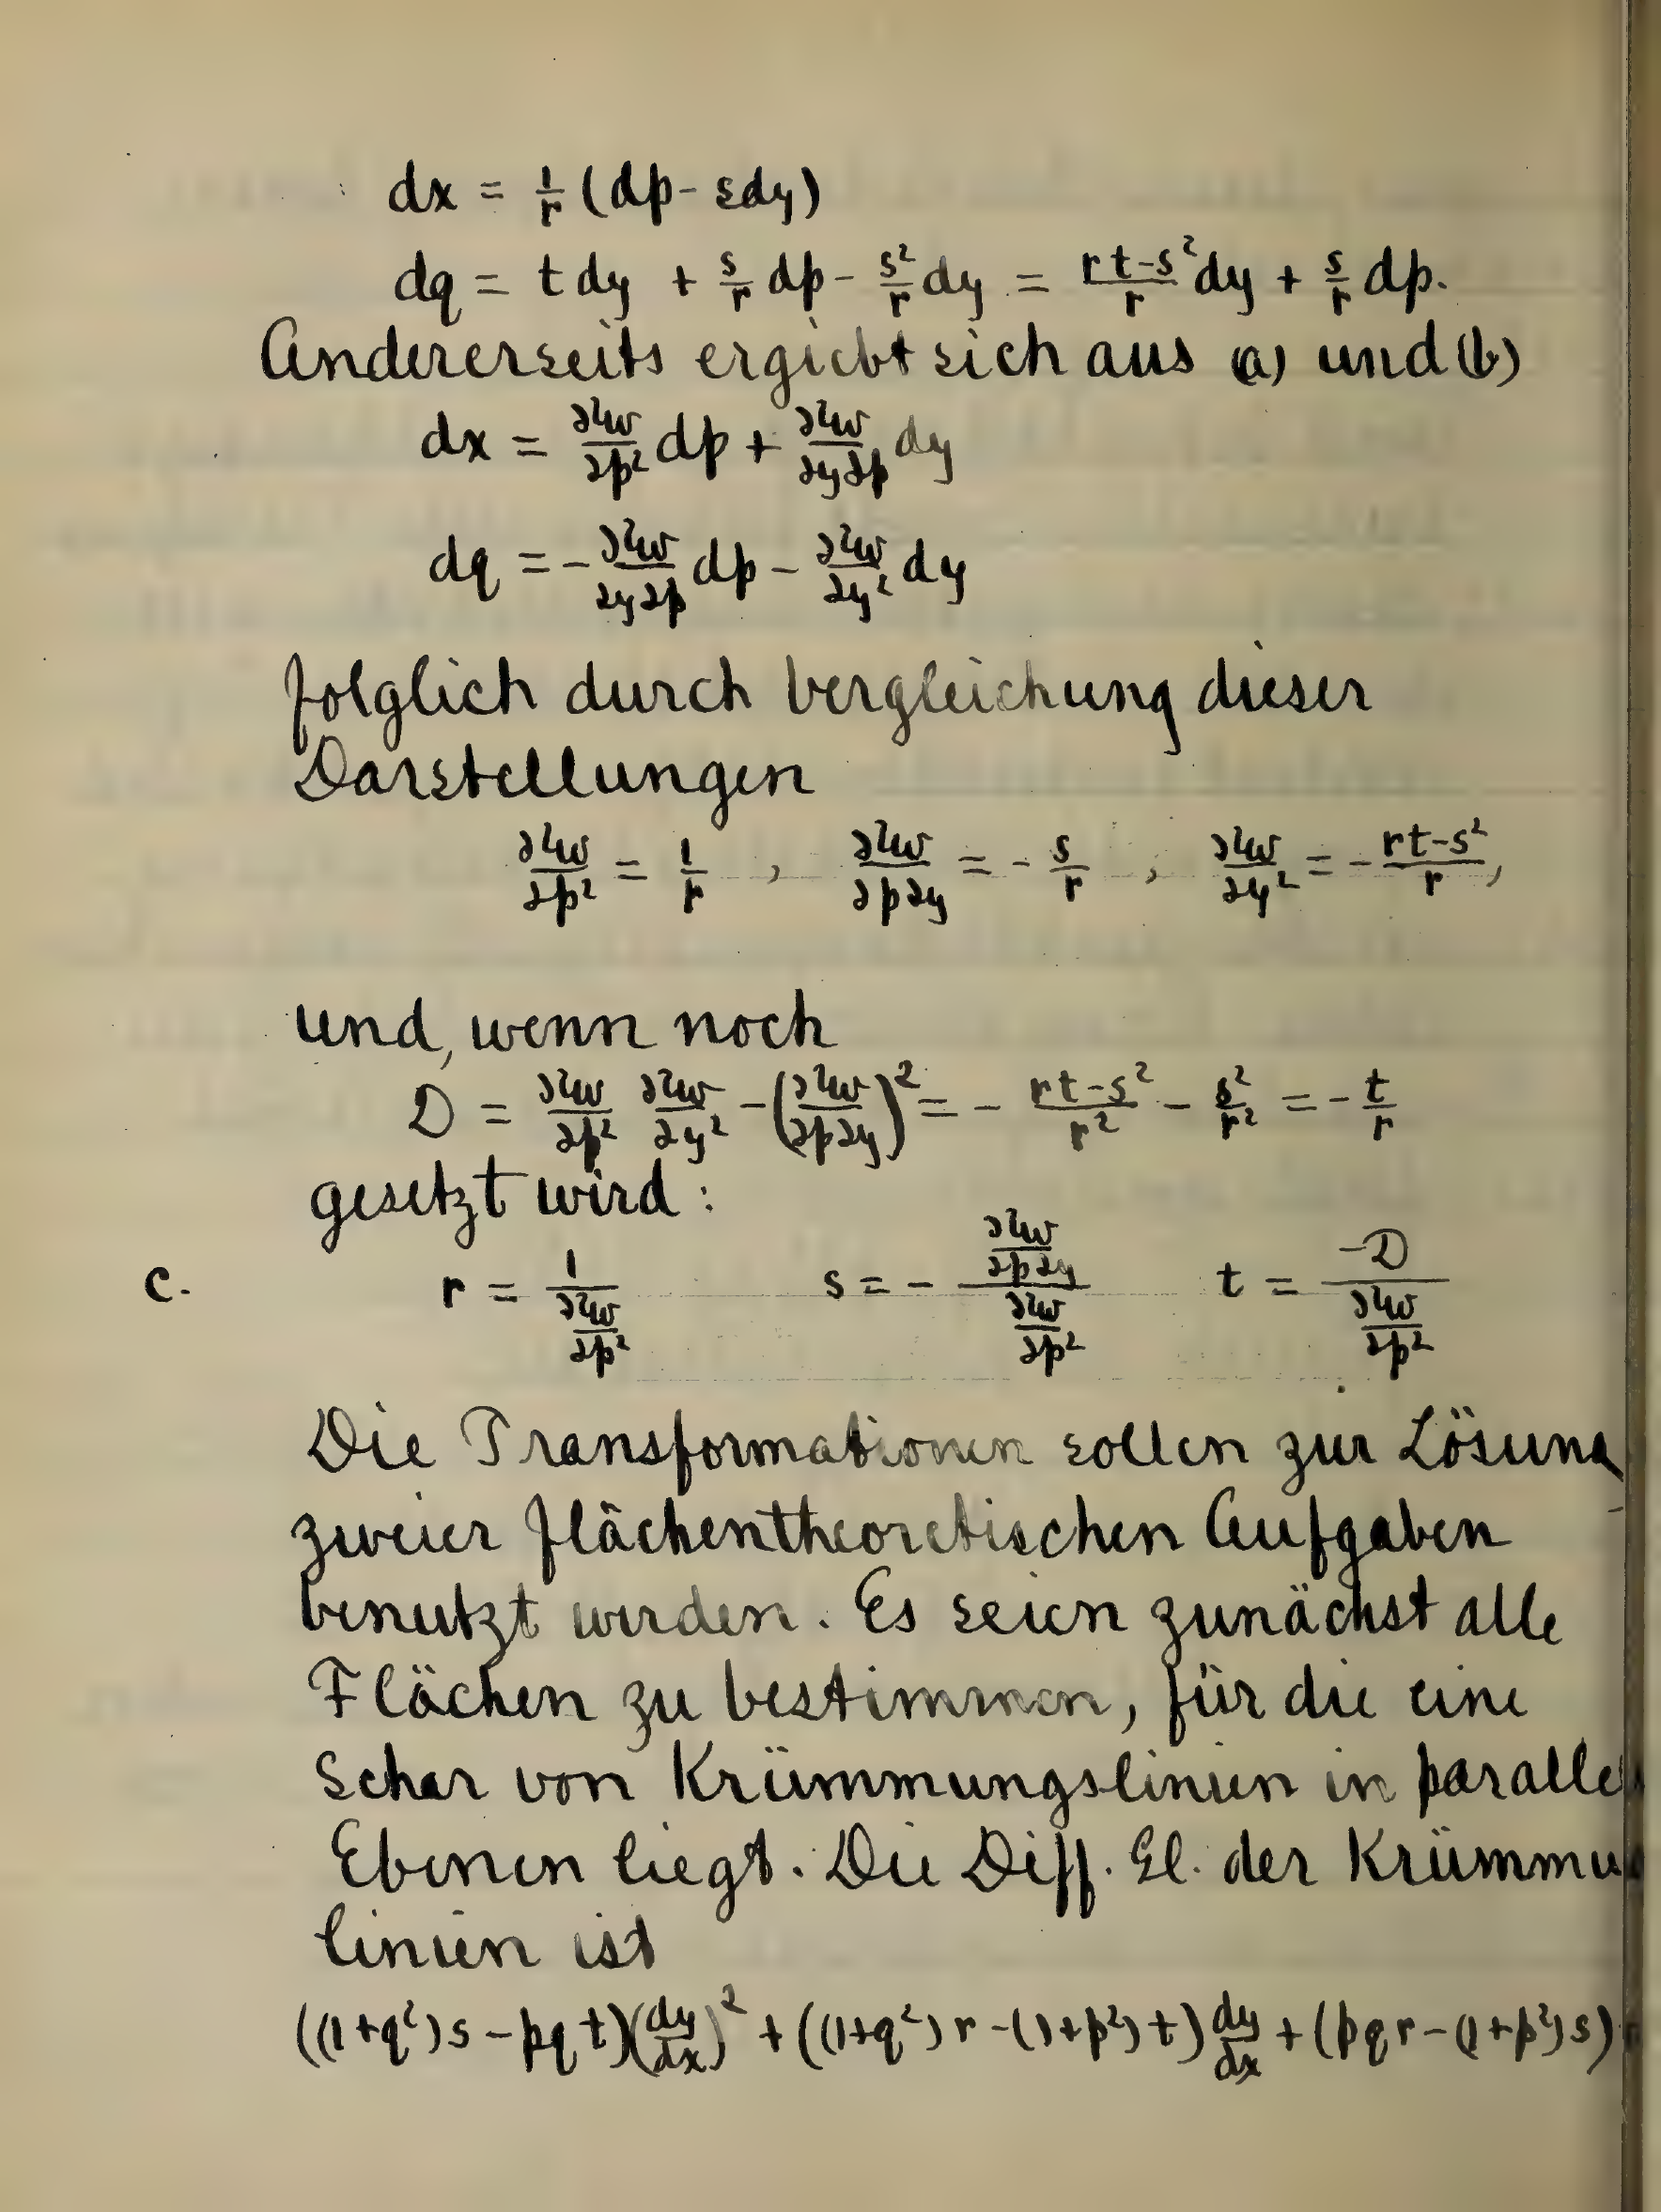 dx = 1/r (dp - sdy)
dq = t dy + s/r dp - s²/r dy = (rt-s²)/r dy + s/r dp.
Andererseits ergiebt sich aus (a) und (b)
dx = ∂²w/∂p² dp + ∂²w/∂y∂p dy
dq = - ∂²w/∂y∂p dp - ∂²w/∂y² dy
folglich durch Vergleichung dieser
Darstellungen
∂²w/∂p² = 1/r , ∂²w/∂p∂y = - s/r , ∂²w/∂y² = - (rt-s²)/r ,
und, wenn noch
D = ∂²w/∂p² ∂²w/∂y² - (∂²w/∂p∂y)² = - (rt-s²)/r² - s²/r² = - t/r
gesetzt wird :
c. r = 1/(∂²w/∂p²) s = - (∂²w/∂p∂y)/(∂²w/∂p²) t = -D/(∂²w/∂p²)
Die Transformationen sollen zur Lösung
zweier flächentheoretischen Aufgaben
benutzt werden. Es seien zunächst alle
Flächen zu bestimmen, für die eine
Schar von Krümmungslinien in paralle
Ebenen liegt. Die Diff. Gl. der Krümmu
linien ist
((1+q²)s - pqt)(dy/dx)² + ((1+q²)r - (1+p²)t) dy/dx + (pqr - (1+p²)s)